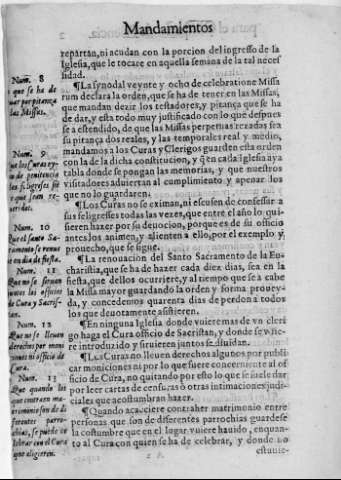 Mandamientos
repartan, ni acudan con la porcion del ingresso de la
Iglesia, que le tocare en aquella semana de la tal neces
sidad.
Num. 8
que se ha de
por pitança
las Missas.
¶La synodal veynte y ocho de celebratione Missa
rum declara la orden, que se ha de tener en las Missas,
que mandan dezir los testadores, y pitança que se ha
de dar, y esta todo muy justificado con lo que despues
se a estendido, de que las Missas perpetuas rezadas sea
su pitança dos reales, y las temporales real y medio,
Num. 9
los Curas
de penitencia
feligreses
que sean re
mandamos a los Curas y Clerigos guarden esta orden
con la de la dicha constitucion, y q̃ en cada Iglesia aya
tabla donde se pongan las memorias, y que nuestros
visitadores aduiertan al cumplimiento y apenor los
que no lo guardaren.
¶Los Curas no se eximan, ni escusen de confessar a
sus feligresses todas las vezes, que entre el año lo qui-
sieren hazer por su deuocion, porque es de su officio
Num. 10
Por el Santo Sa-
cramento se renue
ue en dia de fiesta.
antes los animen, y alienten a ello, por el exemplo y
prouecho, que se sigue.
¶La renouacion del Santo Sacramento de la Eu-
charistia, que se ha de hazer cada diez dias, sea en la
Num. 11
Que no se siruan
juntos los officios
de Cura y Sacris-
tan.
fiesta, que dellos ocurriere, y al tiempo que se a cabe
la Missa mayor guardando la orden y forma proue y-
da, y concedemos quarenta dias de perdon a todos
los que deuotamente assistieren.
¶En ninguna Iglesia donde vuiere mas de vn cleri
go haga el Cura officio de Sacristan, y donde se vuie-
Num. 12
Que no se lleuen
derechos por moni
ciones ni officio de
Cura.
re introduzido y siruieren juntos se diuidan.
¶Los Curas no lleuen derechos algunos por publi
car moniciones ni por lo que fuere concerniente al of
ficio de Cura, no quitando por esto lo que se suele dar
Num. 13
Que quando los
que contraen ma-
trimonio son de di
ferentes parro-
chias, se puede ce
lebrar con el Cura
que eligieren.
por leer cartas de censuras ò otras intimaciones judi-
ciales que acostumbran hazer.
¶Quando acaeciere contraher matrimonio entre
personas que son de differentes parrochias guardese
la costumbre que en el lugar vuiere hauido, enquan-
to al Cura con quien se ha de celebrar, y donde no
estuuie-